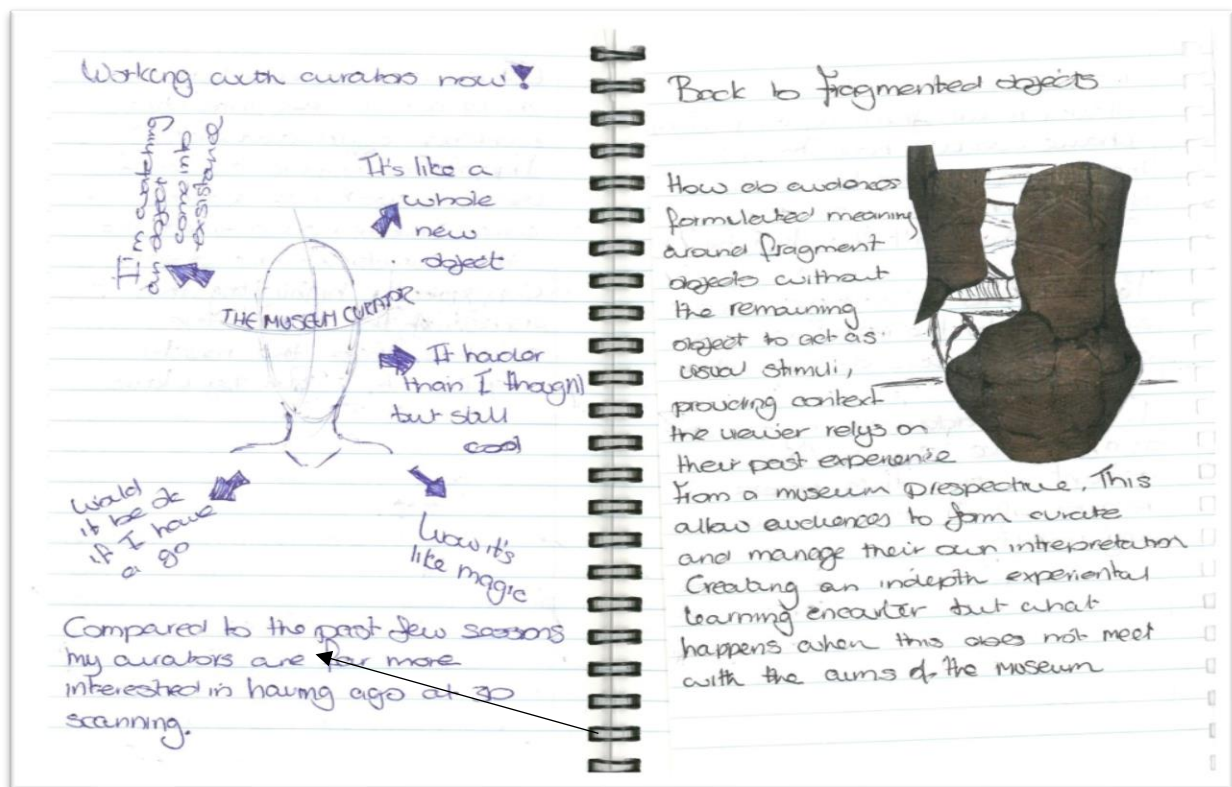 Working with curators now!
I'm watching
an object
come into
exsistance
It's like a
whole
new
object
THE MUSEUM CURATOR
It harder
than I though
but still
cool
Would
it be ok
if I have
a go
Wow it's
like magic
Compared to the past few sessons
my curators are far more
interested in having ago at 3D
scanning.
Back to fragmented objects
How do audences
formulated meaning
around fragment
objects without
the remaining
object to act as
visual stimuli,
providing context
the viewer relys on
their past experience
from a museum prespective. This
allow audiences to form curate
and manage their own intrepretation
Creating an indepth experiental
learning encounter but what
happens when this does not meet
with the aims of the museum